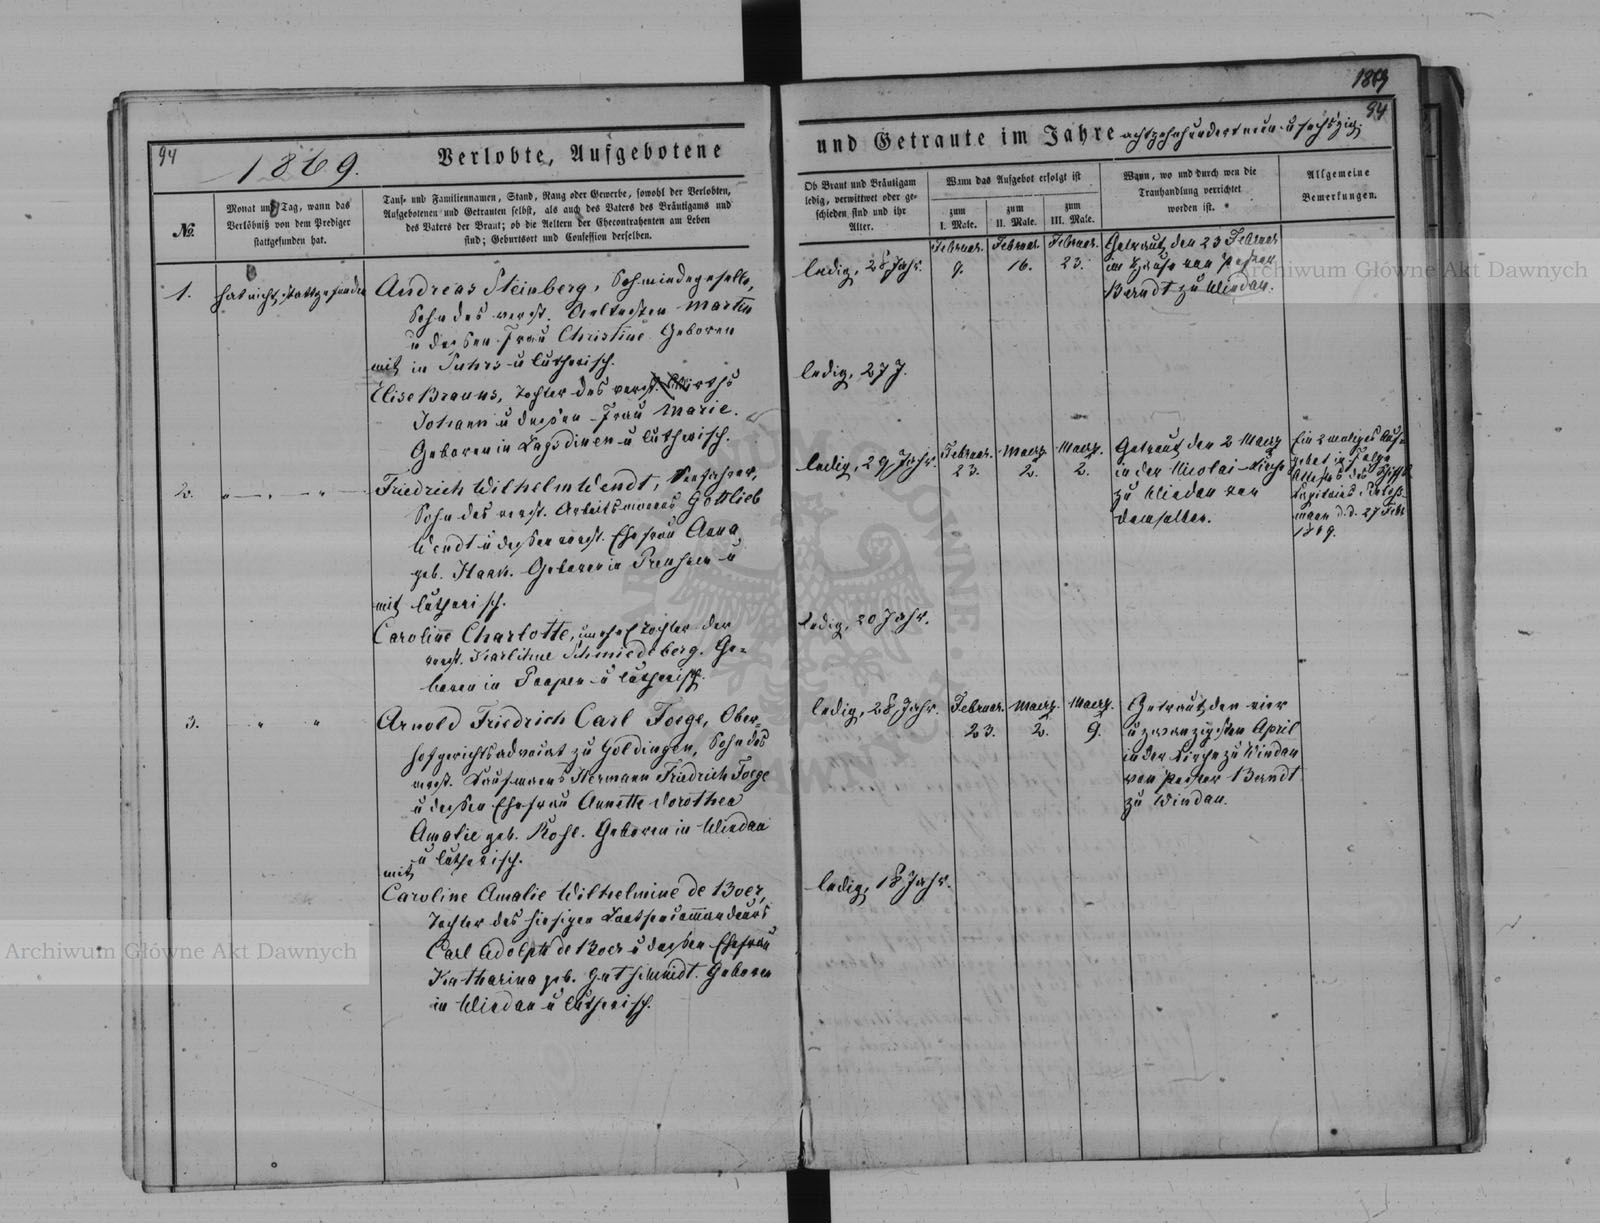 94
1869.
Verlobte, Aufgebotene
№.
Monat und Tag, wann das
Verlöbniß von dem Prediger
stattgefunden hat.
Tauf- und Familiennamen, Stand, Rang oder Gewerbe, sowohl der Verlobten,
Aufgebotenen und Getrauten selbst, als auch des Vaters des Bräutigams und
des Vaters der Braut; ob die Aeltern der Ehecontrahenten am Leben
sind; Geburtsort und Confession derselben.
1.
hat nicht stattgefunden
Andreas Steinberg, Schmiedegeselle,
Sohn des verst. Aeltesten Martin
u dessen Frau Christine Geboren
mit in Puhrs u lutherisch.
Elise Brauns, Tochter des verst. Wirths
Johann u dessen Frau Marie.
Geboren in u lutherisch.
2.
Friedrich Wilhelm Wendt, Seefahrer,
Sohn des verst. Arbeitsmanns Gottlieb
Wendt u dessen verst. Ehefrau Anna
geb. Haak. Geboren in Preussen u
mit lutherisch.
Caroline Charlotte, unehel Tochter der
verst. Karoline Schmiedeberg. Ge-
boren in u lutherisch.
3.
Arnold Friedrich Carl Foege, Ober-
hofgerichtsadvocat zu Goldingen, Sohn des
verst. Kaufmanns Hermann Friedrich Foege
u dessen Ehefrau Annette Dorothea
Amalie geb. Kohl. Geboren in Windau
u lutherisch.
mit
Caroline Amalie Wilhelmine de Boer,
Tochter des hiesigen Lootsencommandeurs
Carl Adolph de Boer u dessen Ehefrau
Katharina geb. Gutschmidt. Geboren
in Windau u lutherisch.
1869
94
und Getraute im Jahre achtzehnhundert neun u sechszig.
Ob Braut und Bräutigam
ledig, verwittwet oder ge-
schieden sind und ihr
Alter.
Wann das Aufgebot erfolgt ist
zum
I. Male.
zum
II. Male.
zum
III. Male.
Wann, wo und durch wen die
Trauhandlung verrichtet
worden ist.
Allgemeine
Bemerkungen.
ledig, 28 Jahr.
Februar.
9.
Februar.
16.
Februar.
23.
Getraut den 23 Februar
im Hause von Pastor
Berndt zu Windau.
ledig, 27 J.
ledig, 29 Jahr.
Februar.
23.
Maerz.
2.
Maerz.
2.
Getraut den 2 Maerz
in der Nicolai-Kirche
zu Windau von
demselben.
Ein 2 maliges Auf-
gebot in Folge
Attestes des Schiffs
Capitains
mann d. d. 27 Febr
1869.
ledig, 20 Jahr.
ledig, 28 Jahr.
Februar.
23.
Maerz.
2.
Maerz.
9.
Getraut den vier
u zwanzigsten April
in der Kirche zu Windau
von Pastor Berndt
zu Windau.
ledig, 18 Jahr.
Archiwum Główne Akt Dawnych
Archiwum Główne Akt Dawnych